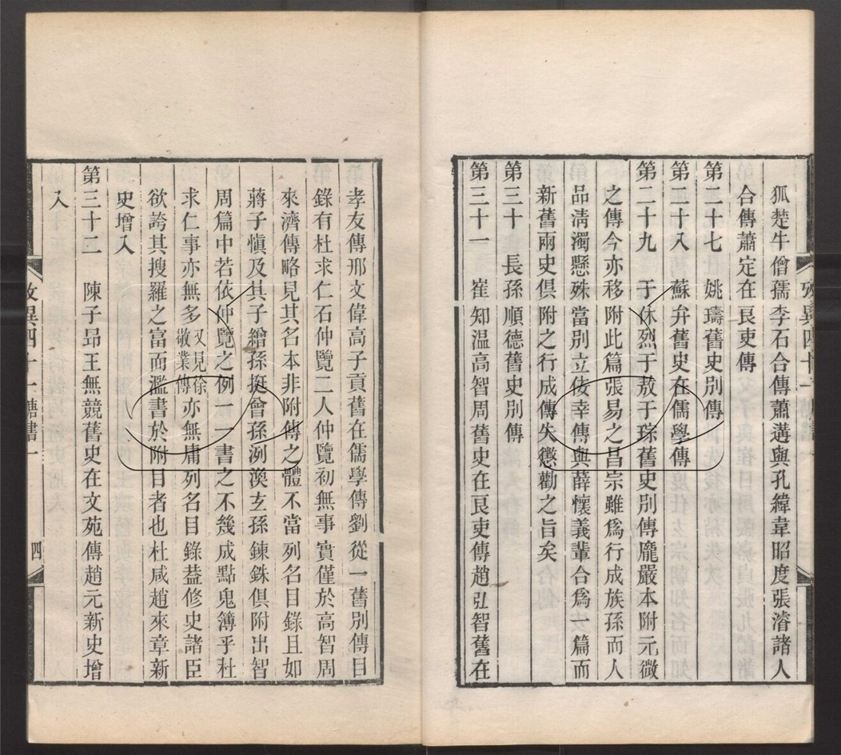 狐楚牛僧孺李石合傳蕭遘與孔緯韋昭度張濬諸人
合傳蕭定在良吏傳
第二十七　姚璹舊史別傳
第二十八　蘇弁舊史在儒學傳
第二十九　于休烈于敖于琮舊史別傳龐嚴本附元微
之傳今亦移附此篇張易之昌宗雖爲行成族孫而人
品淸濁懸殊當別立佞幸傳與薛懷義輩合爲一篇而
新舊兩史俱附之行成傳失懲勸之旨矣
第三十　長孫順德舊史別傳
第三十一　崔知温高智周舊史在良吏傳趙弘智舊在
孝友傳邢文偉高子貢舊在儒學傳劉從一舊別傳目
錄有杜求仁石仲覽二人仲覽初無事實僅於高智周
來濟傳略見其名本非附傳之體不當列名目錄且如
蔣子愼及其子繒孫挺曾孫洌渙玄孫鍊銖俱附出智
周篇中若依仲覽之例一一書之不幾成點鬼簿乎杜
求仁事亦無多又見徐敬業傳亦無庸列名目錄葢修史諸臣
欲誇其搜羅之富而濫書於附目者也杜咸趙來章新
史增入
第三十二　陳子昂王無競舊史在文苑傳趙元新史增
入
攷異四十一唐書一
四